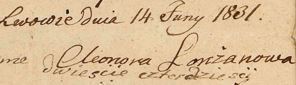 Lwowie dnia 14 Juny 1831.
me Eleonora Łonżanowa
dwieście czterdzieści